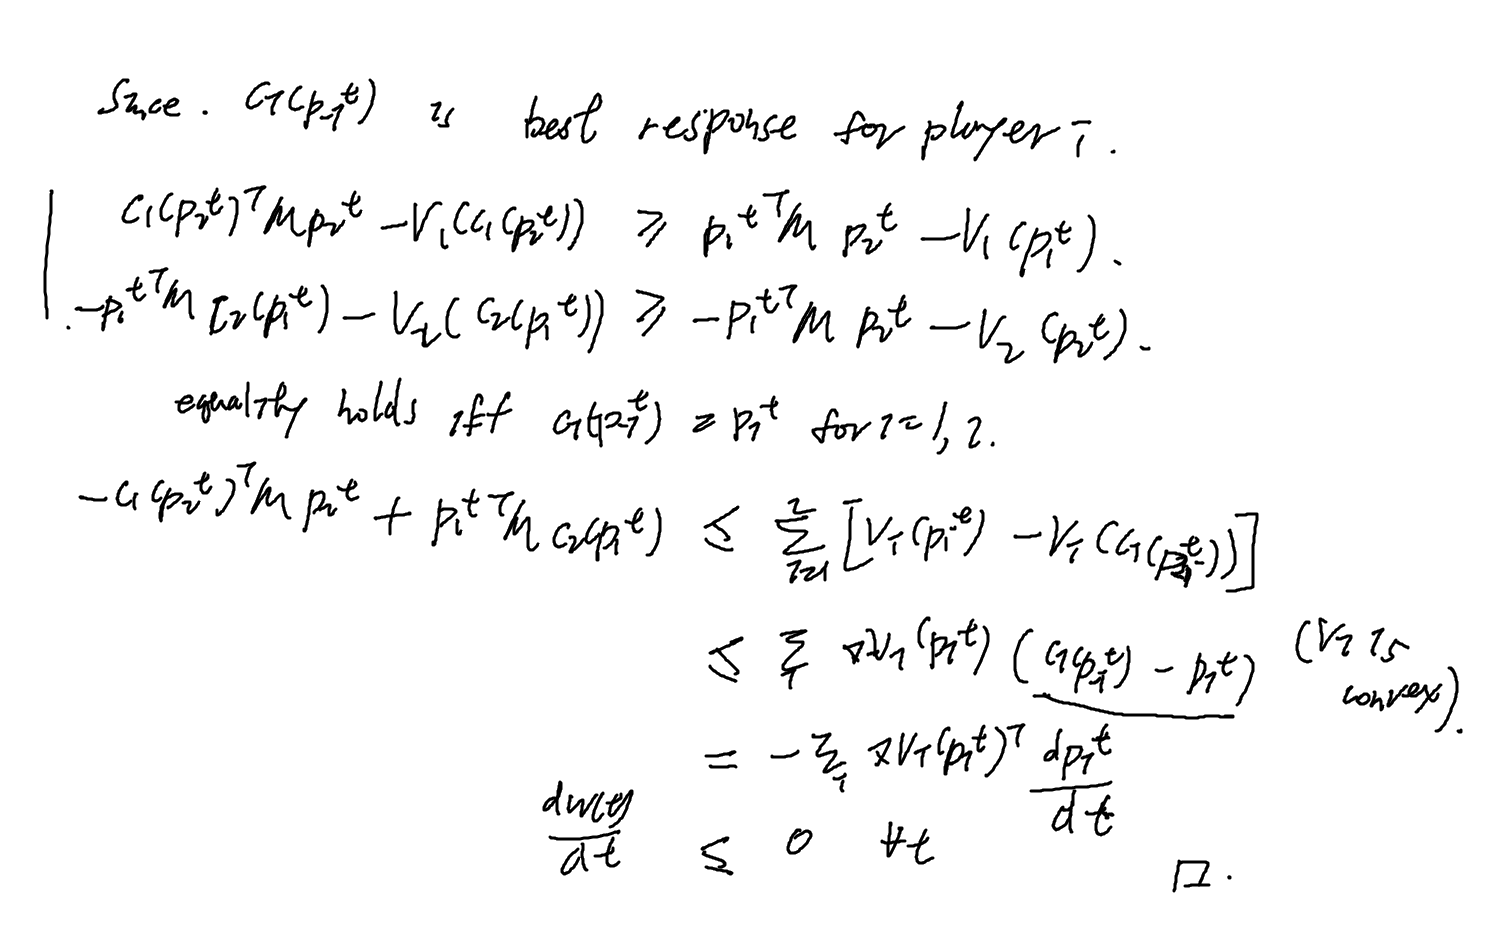 Since. Ci(p-i^t) is best response for player i.
C1(p2^t)^T M p2^t − V1(C1(p2^t)) ≥ p1^t^T M p2^t − V1(p1^t).
−p1^t^T M C2(p1^t) − V2(C2(p1^t)) ≥ −p1^t^T M p2^t − V2(p2^t).
equality holds iff Ci(p-i^t) = pi^t for i=1,2.
−C1(p2^t)^T M p2^t + p1^t^T M C2(p1^t) ≤ Σ_{i=1}^{2} [Vi(pi^t) − Vi(Ci(p-i^t))]
≤ Σ_i ∇Vi(pi^t) (Ci(p-i^t) − pi^t) (Vi is convex).
= −Σ_i ∇Vi(pi^t)^T dpi^t/dt
dw(t)/dt ≤ 0 ∀t □.